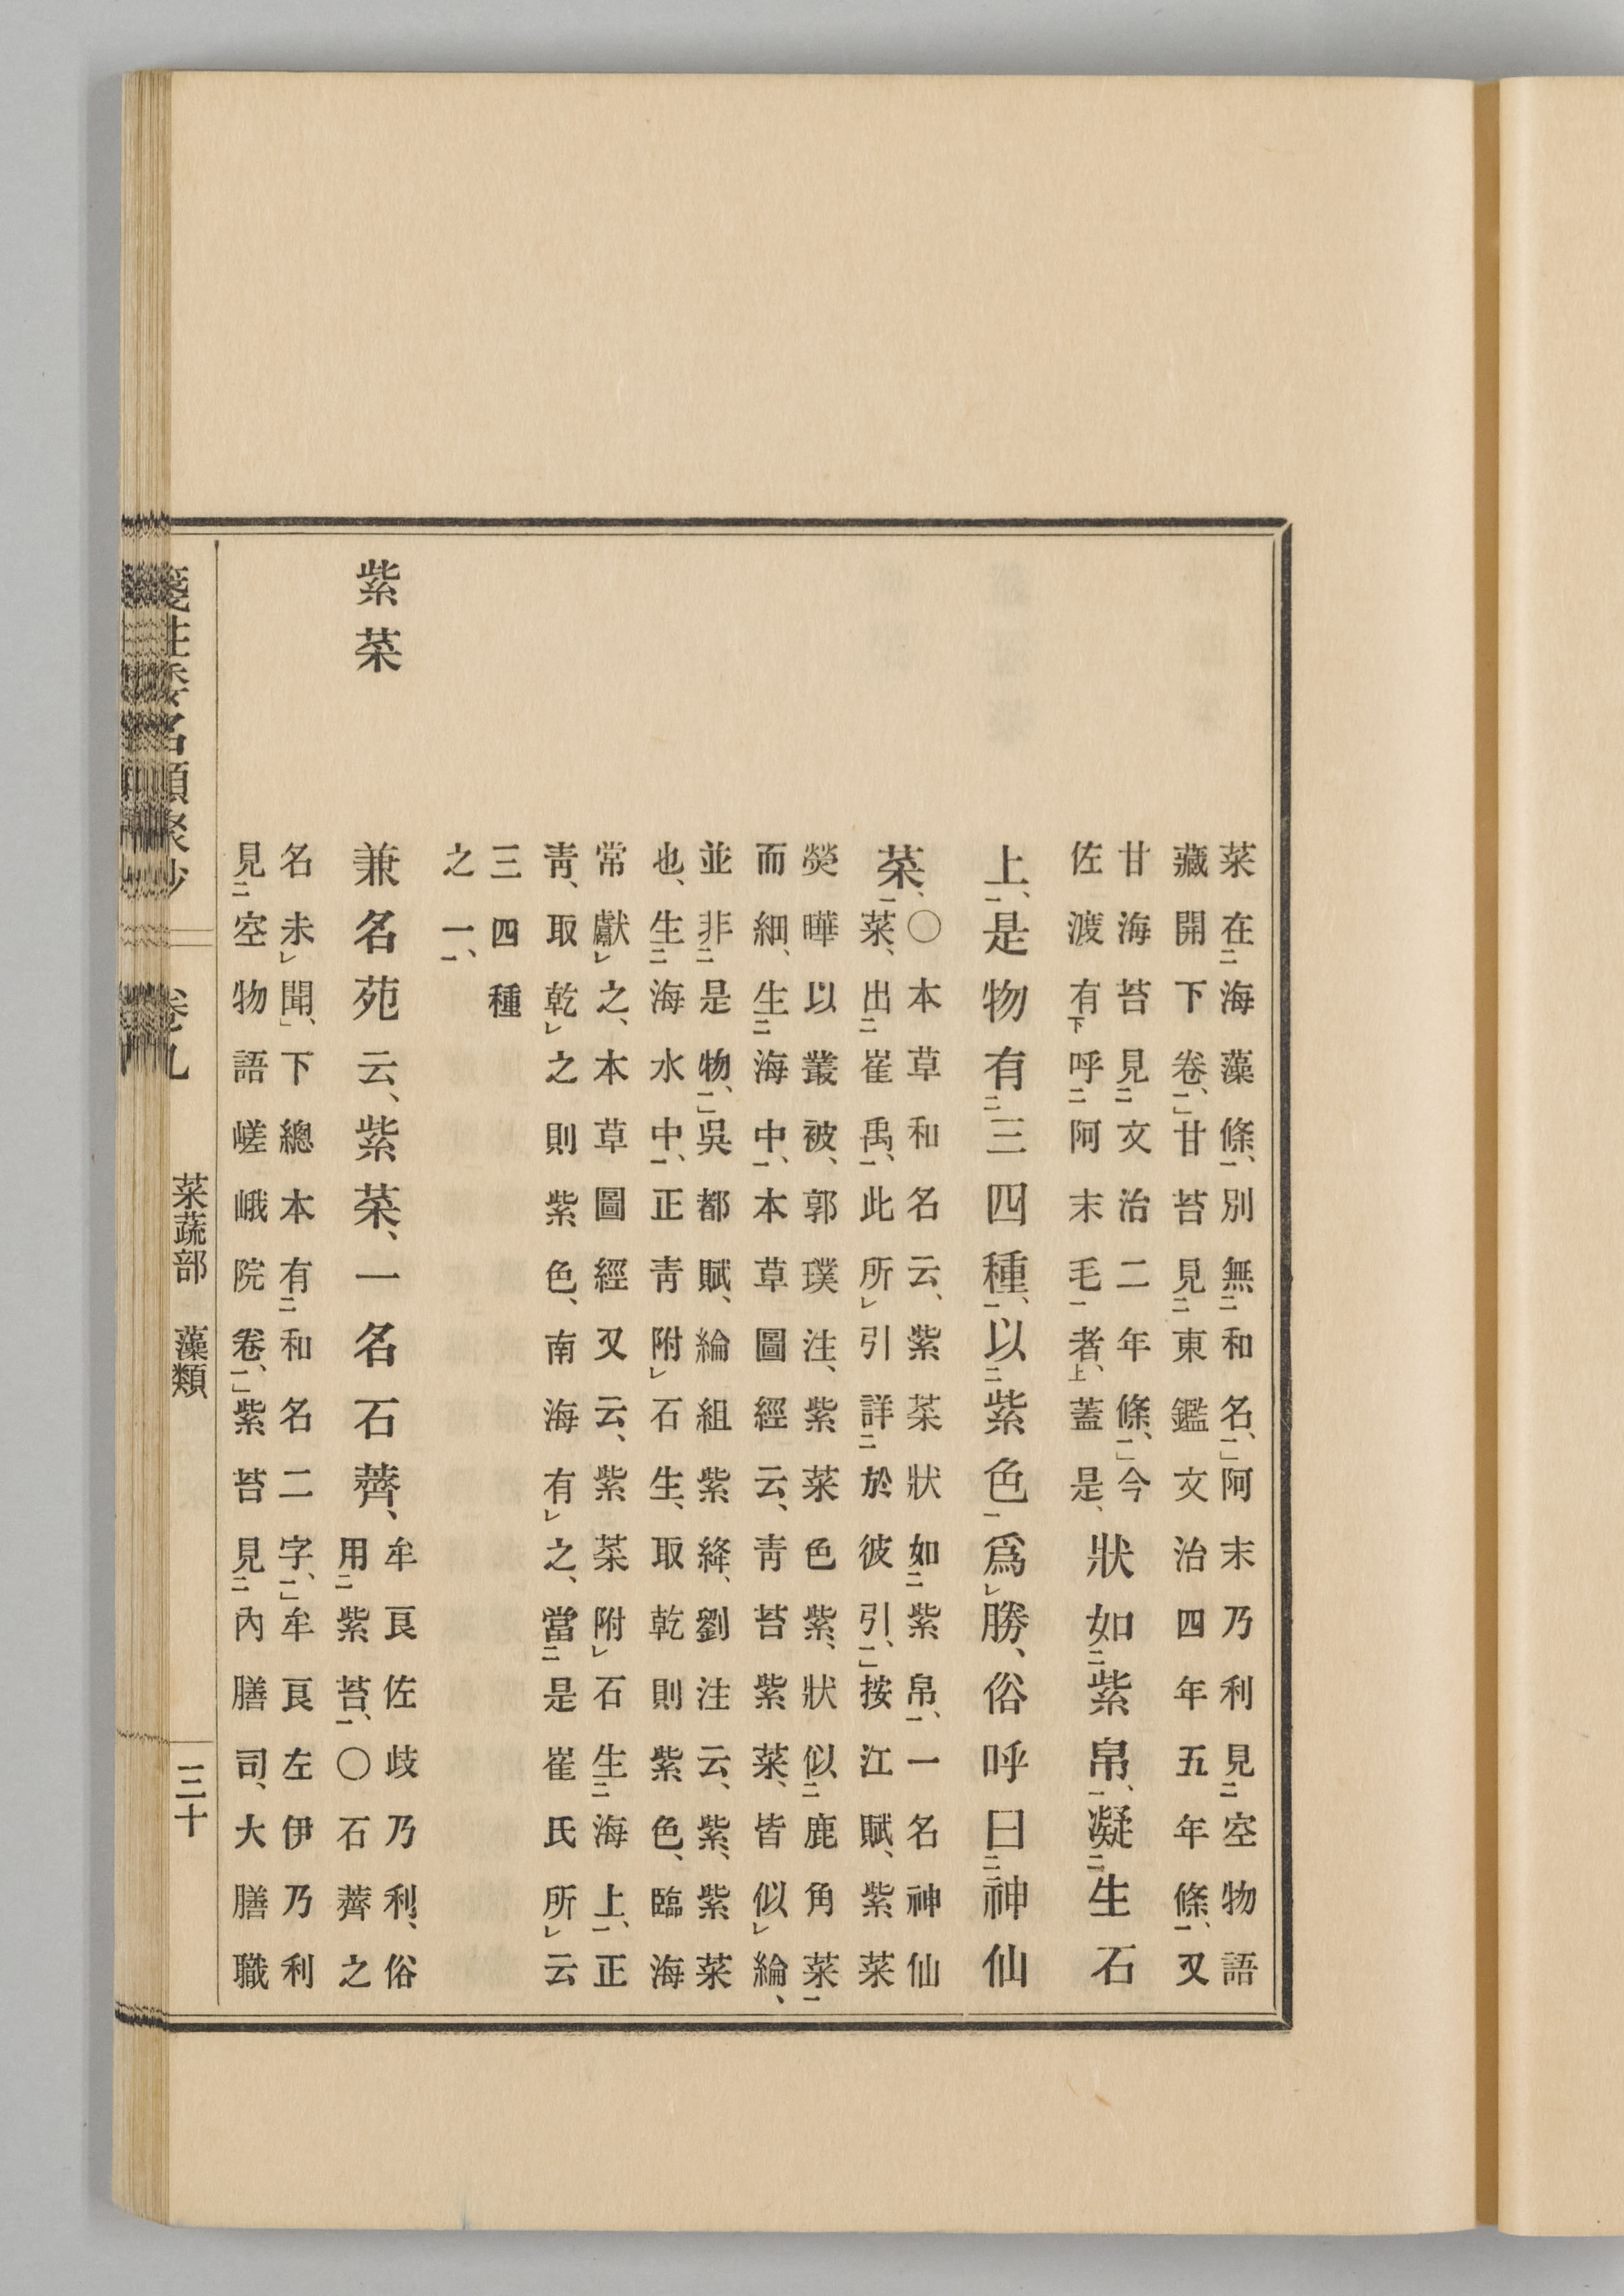 菜在二海藻條一、別無二和名一、」阿末乃利見二空物語
藏開下卷一、」甘苔見二東鑑文治四年五年條一、又
甘海苔見二文治二年條一、」今
佐渡有下呼二阿末毛一者上、蓋是、
狀如二紫帛一、凝二生石
上一、是物有二三四種一、以二紫色一爲レ勝、俗呼曰二神仙
菜一、
〇本草和名云、紫菜狀如二紫帛一、一名神仙
菜、出二崔禹一、此所レ引詳二於彼引一、」按江賦、紫菜
熒曄以叢被、郭璞注、紫菜色紫、狀似二鹿角菜一
而細、生二海中一、本草圖經云、靑苔紫菜、皆似レ綸、
並非二是物一、」吳都賦、綸組紫絳、劉注云、紫、紫菜
也、生二海水中一、正靑附レ石生、取乾則紫色、臨海
常獻レ之、本草圖經又云、紫菜附レ石生二海上一、正
靑、取乾レ之則紫色、南海有レ之、當二是崔氏所レ云
三四種
之一一、
紫菜　兼名苑云、紫菜、一名石薺、
牟良佐歧乃利、俗
用二紫苔一、〇石薺之
名未レ聞、」下總本有二和名二字一、」牟良左伊乃利
見二空物語嵯峨院卷一、」紫苔見二內膳司、大膳職
箋注倭名類聚抄　卷九　菜蔬部　藻類　三十